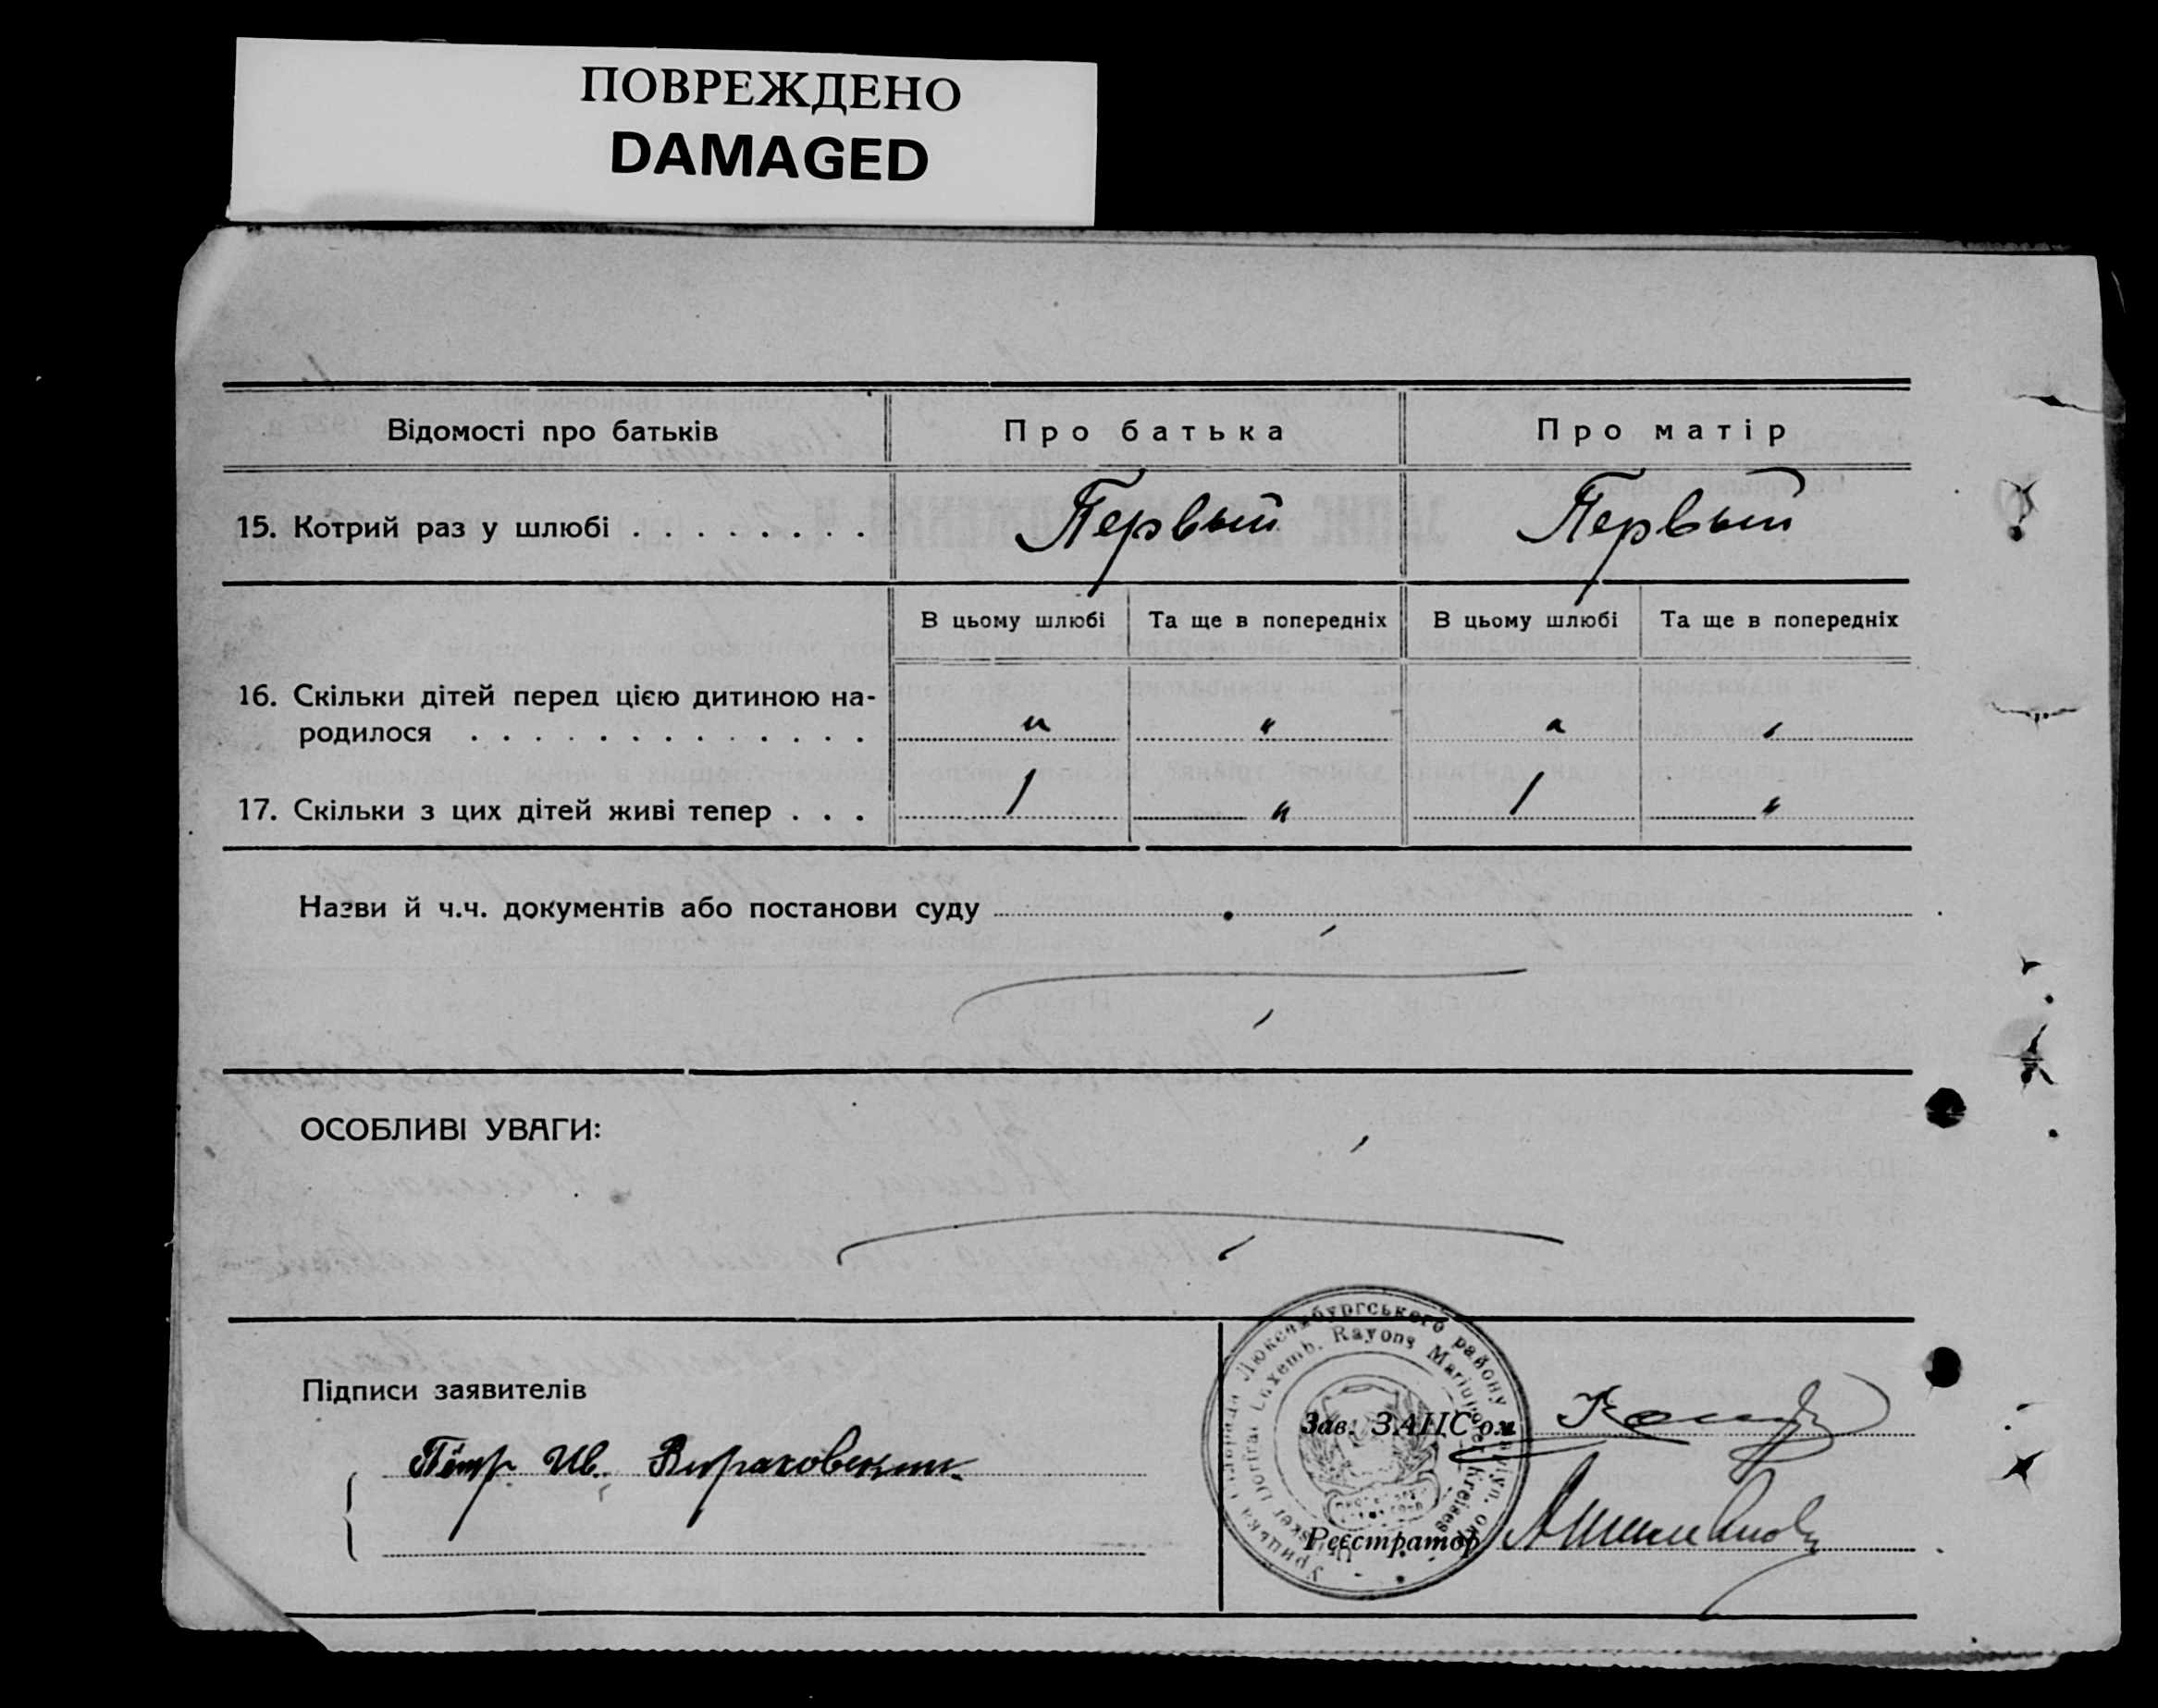 ПОВРЕЖДЕНО
DAMAGED
Відомості про батьків
Про батька
Про матір
15. Котрий раз у шлюбі . . . . . . . .
Первый
Первый
В цьому шлюбі
Та ще в попередніх
В цьому шлюбі
Та ще в попередніх
16. Скільки дітей перед цією дитиною на-
родилося . . . . . . . . . . . . .
"
"
"
"
17. Скільки з цих дітей живі тепер . . .
1
"
1
"
Назви й ч.ч. документів або постанови суду
ОСОБЛИВІ УВАГИ:
Підписи заявителів
Пётр Ив.
Люксембургського району
Luxemb. Rayons Mariupoler Kreises
Зав. ЗАЦС'ом
Реєстратор